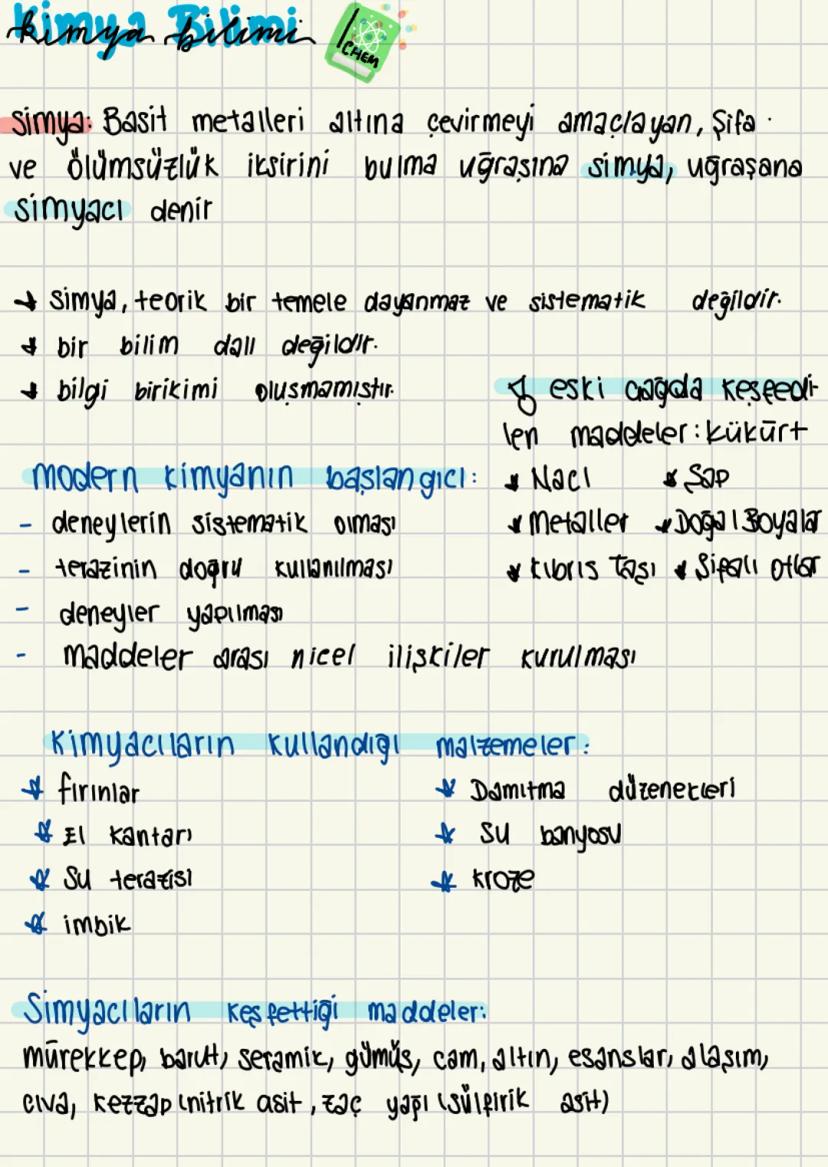 Kimya Bilimi
kimya bilimi
CHEM
simya: Basit metalleri altına çevirmeyi amaçlayan, Şifa
ve ölümsüzlük iksirini bulma uğraşına simya, uğraşana
simyacı denir
simya, teorik bir temele dayanmaz ve sistematik değildir.
bir bilim dalı değildir.
bilgi birikimi oluşmamıştır.
eski çağda keşfedi-
len maddeler: kükürt
NaCl Şap
Metaller Doğal Boyalar
Kıbrıs Taşı Şifalı otlar
modern kimyanın başlangıcı:
- deneylerin sistematik olması
- terazinin doğru kullanılması
- deneyler yapılması
- maddeler arası nicel ilişkiler kurulması
Kimyacıların kullandığı malzemeler:
fırınlar Damıtma düzenekleri
El kantarı Su banyosu
Su terazisi kroze
imbik
Simyacıların keşfettiği maddeler:
mürekkep, barut, seramik, gümüş, cam, altın, esanslar, alaşım,
cıva, kezzap (nitrik asit, zaç yapı (sülfirik asit)